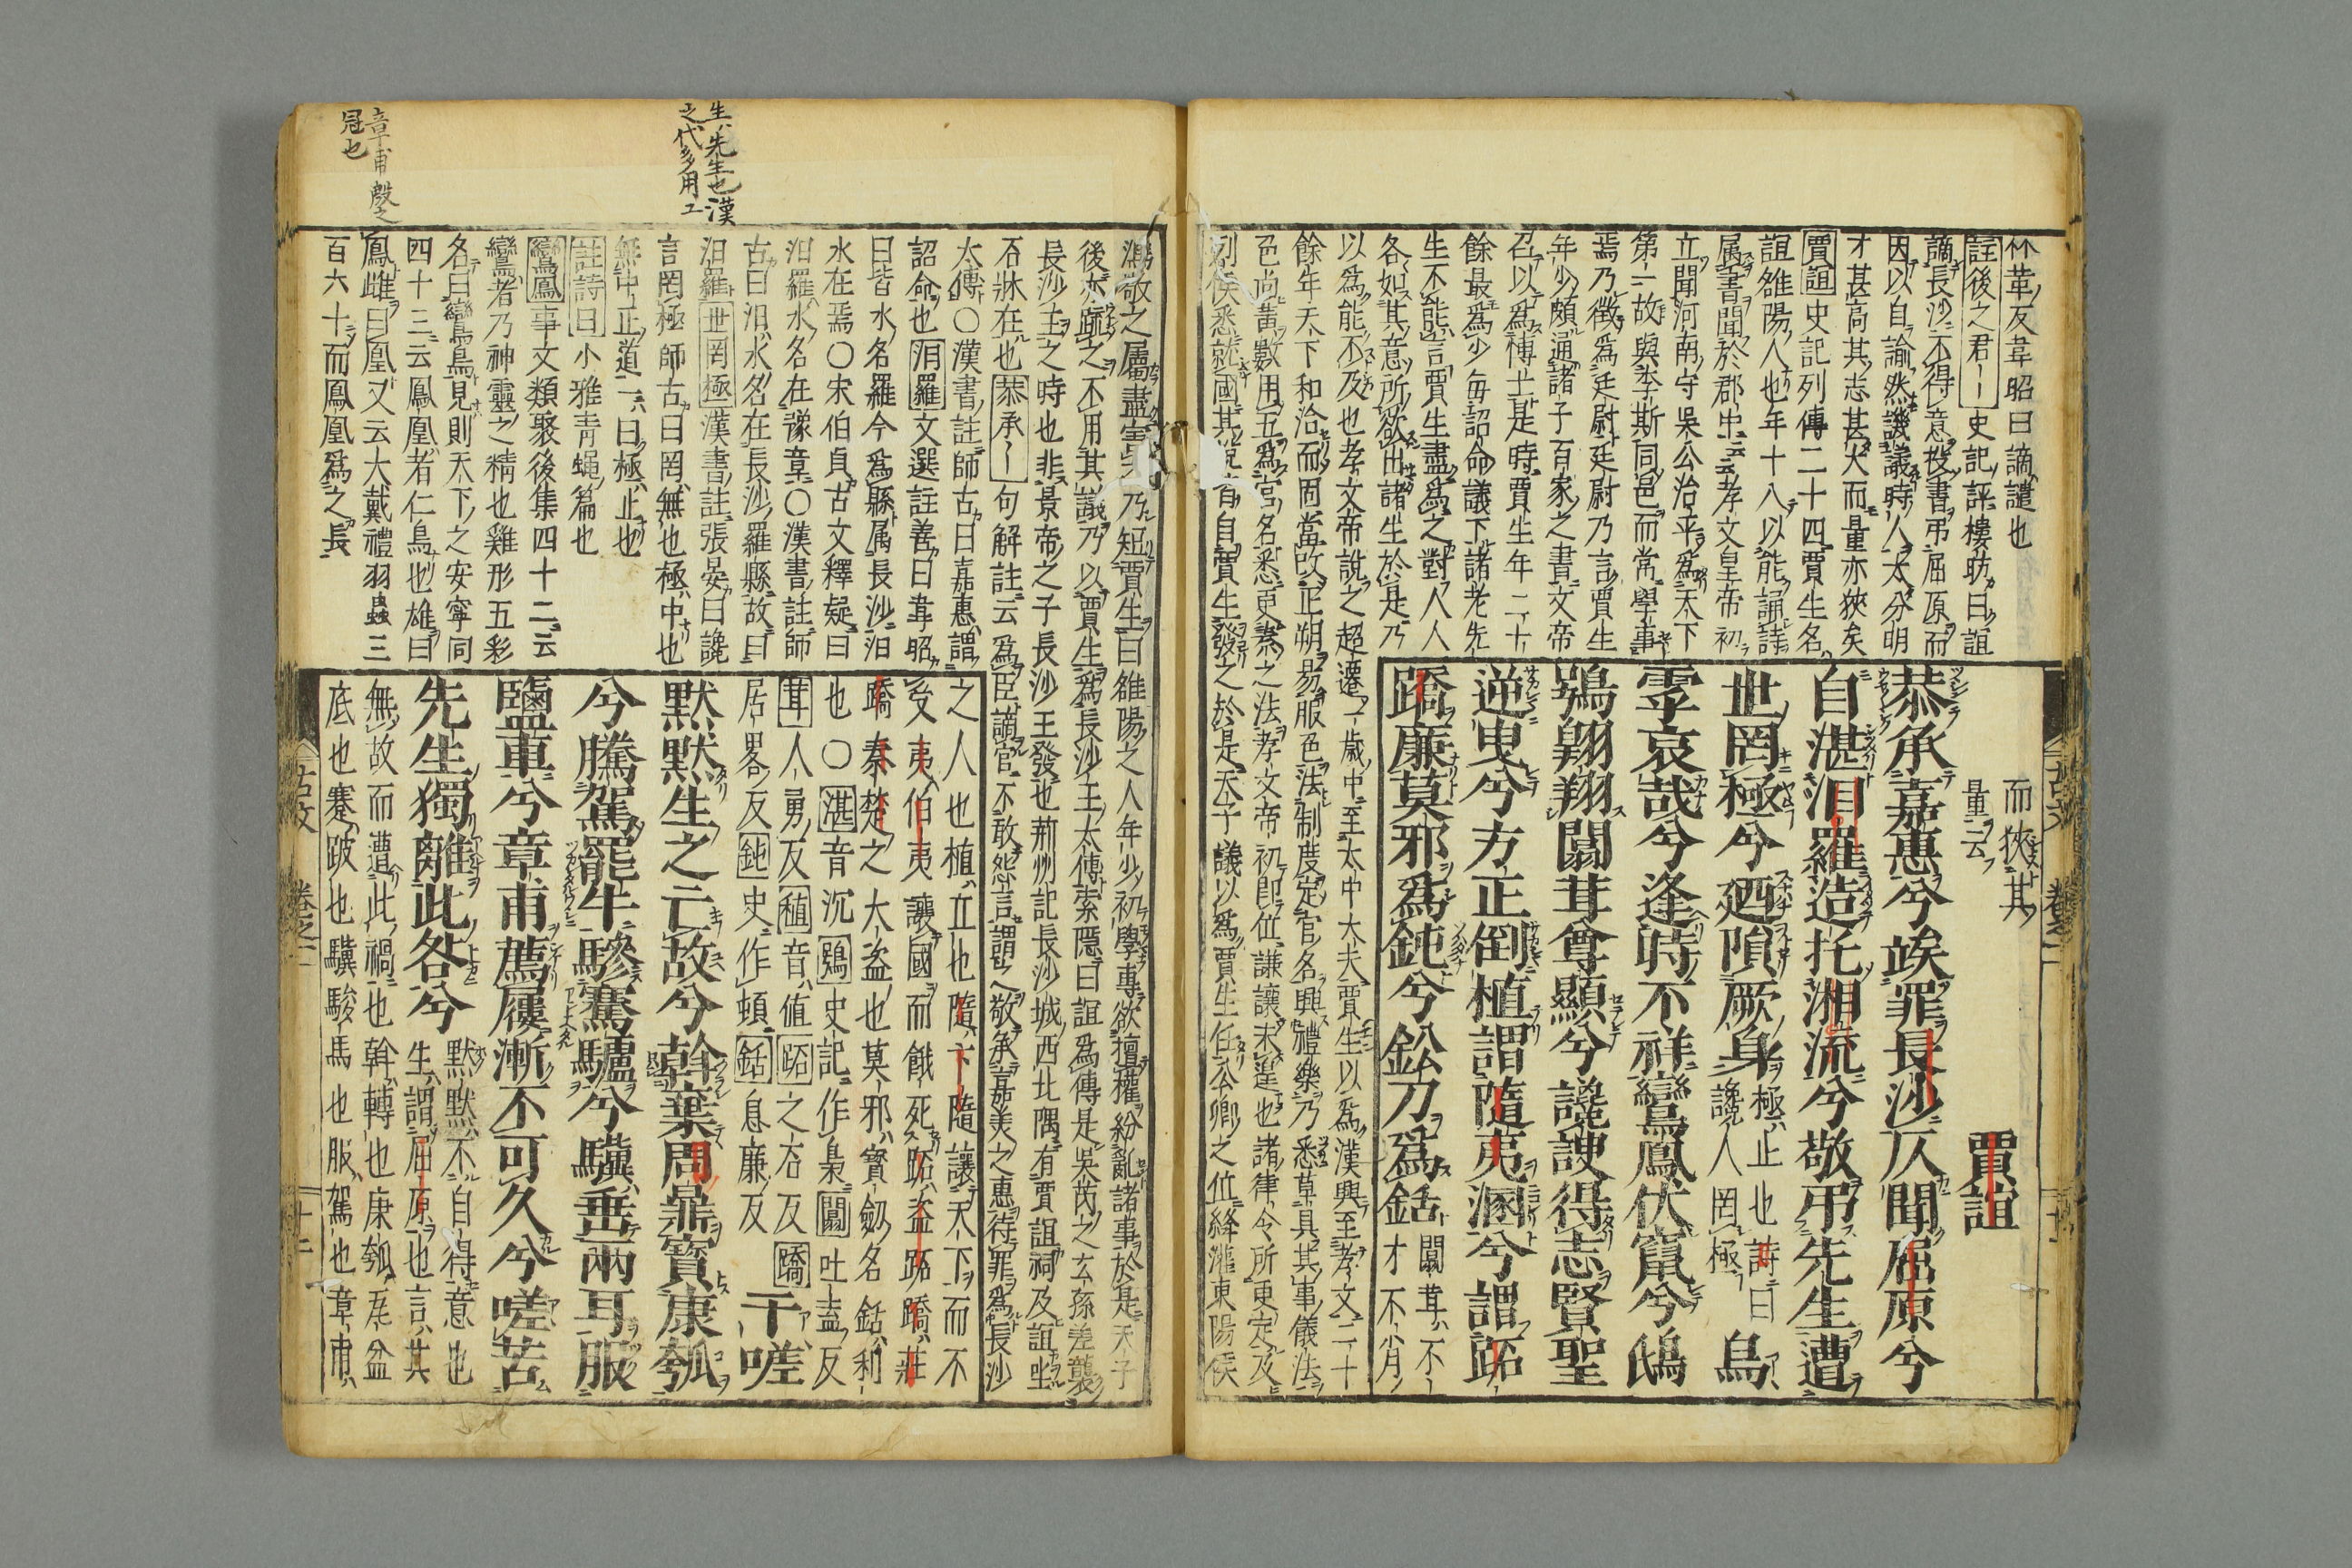 竹革友韋昭曰謫譴也
註後之君｜史記評樓昉曰誼
謫長沙不得意投書弔屈原而
因以自諭然譏議時人太分明
才甚高其志甚大而量亦狹矣
賈誼史記列傳二十四賈生名
誼雒陽人也年十八以能誦詩
属書聞於郡中云云孝文皇帝初
立聞河南守吳公治平爲天下
第一故與李斯同邑而常學事
焉乃徵爲廷尉廷尉乃言賈生
年少頗通諸子百家之書文帝
召以爲博士是時賈生年二十
餘最爲少每詔命議下諸老先
生不能言賈生盡爲之對人人
各如其意所欲出諸生於是乃
以爲能不及也孝文帝說之超遷一歲中至太中大夫賈生以爲漢興至孝文二十
餘年天下和洽而固當改正朔易服色法制度定官名興禮樂乃悉草具其事儀法
色尚黃數用五爲官名悉更秦之法孝文帝初即位謙讓未遑也諸律令所更定及
列侯悉就國其說皆自賈生發之於是天子議以爲賈生任公卿之位絳灌東陽侯
而狹其
量云
賈誼
恭承嘉惠兮竢罪長沙仄聞屈原兮
自湛汨羅造托湘流兮敬弔先生遭
世罔極兮廼隕厥身極止也詩曰讒人罔極烏
虖哀哉兮逢時不祥鸞鳳伏竄兮鴟
鴞翺翔闒茸尊顯兮讒諛得志賢聖
逆曳兮方正倒植謂隨夷溷兮謂跖
蹻廉莫邪爲鈍兮鈆刀爲銛闒茸不才不肖
古文 卷之二 十二
馮敬之屬盡害之乃短賈生曰雒陽之人年少初學專欲擅權紛亂諸事於是天子
後亦疏之不用其議乃以賈生爲長沙王太傅索隱曰誼爲傅是吳芮之玄孫差襲
長沙王之時也非景帝之子長沙王發也荊州記長沙城西北隅有賈誼祠及誼坐
石牀在也恭承｜句解註云爲臣謫官不敢怨言謂敬承嘉美之惠待罪爲長沙
太傅〇漢書註師古曰嘉惠謂
詔命也汨羅文選註善曰韋昭
曰皆水名羅今爲縣属長沙汨
水在焉〇宋伯貞古文釋疑曰
汨羅水名在豫章〇漢書註師
古曰汨水名在長沙羅縣故曰
汨羅世罔極漢書註張晏曰讒
言罔極師古曰罔無也極中也
無中正道一曰極止也
註詩曰小雅青蠅篇也
鸞鳳事文類聚後集四十二云
鸞者乃神靈之精也雞形五彩
名曰鸞鳥見則天下之安寧同
四十三云鳳凰者仁鳥也雄曰
鳳雌曰凰又云大戴禮羽蟲三
百六十而鳳凰爲之長
之人也植立也隨卞隨讓天下而不
受夷伯夷讓國而餓死跖盗跖蹻莊
蹻秦楚之大盗也莫邪寳劔名銛利
也〇湛音沉鴞史記作梟闒吐盍反
茸人勇反植音値跖之石反蹻
居畧反鈍史作頓銛息廉反于嗟
默默生之亡故兮斡棄周鼎寳康瓠
兮騰駕罷牛驂蹇驢兮驥垂兩耳服
鹽車兮章甫薦屨漸不可久兮嗟苦
先生獨離此咎兮默默不自得意也生謂屈原也言其
無故而遭此禍也斡轉也康瓠瓦盆
底也蹇跛也驥駿馬也服駕也章甫
古文 卷之二 十二
生先生也漢
之代多用工
章甫殷之
冠也